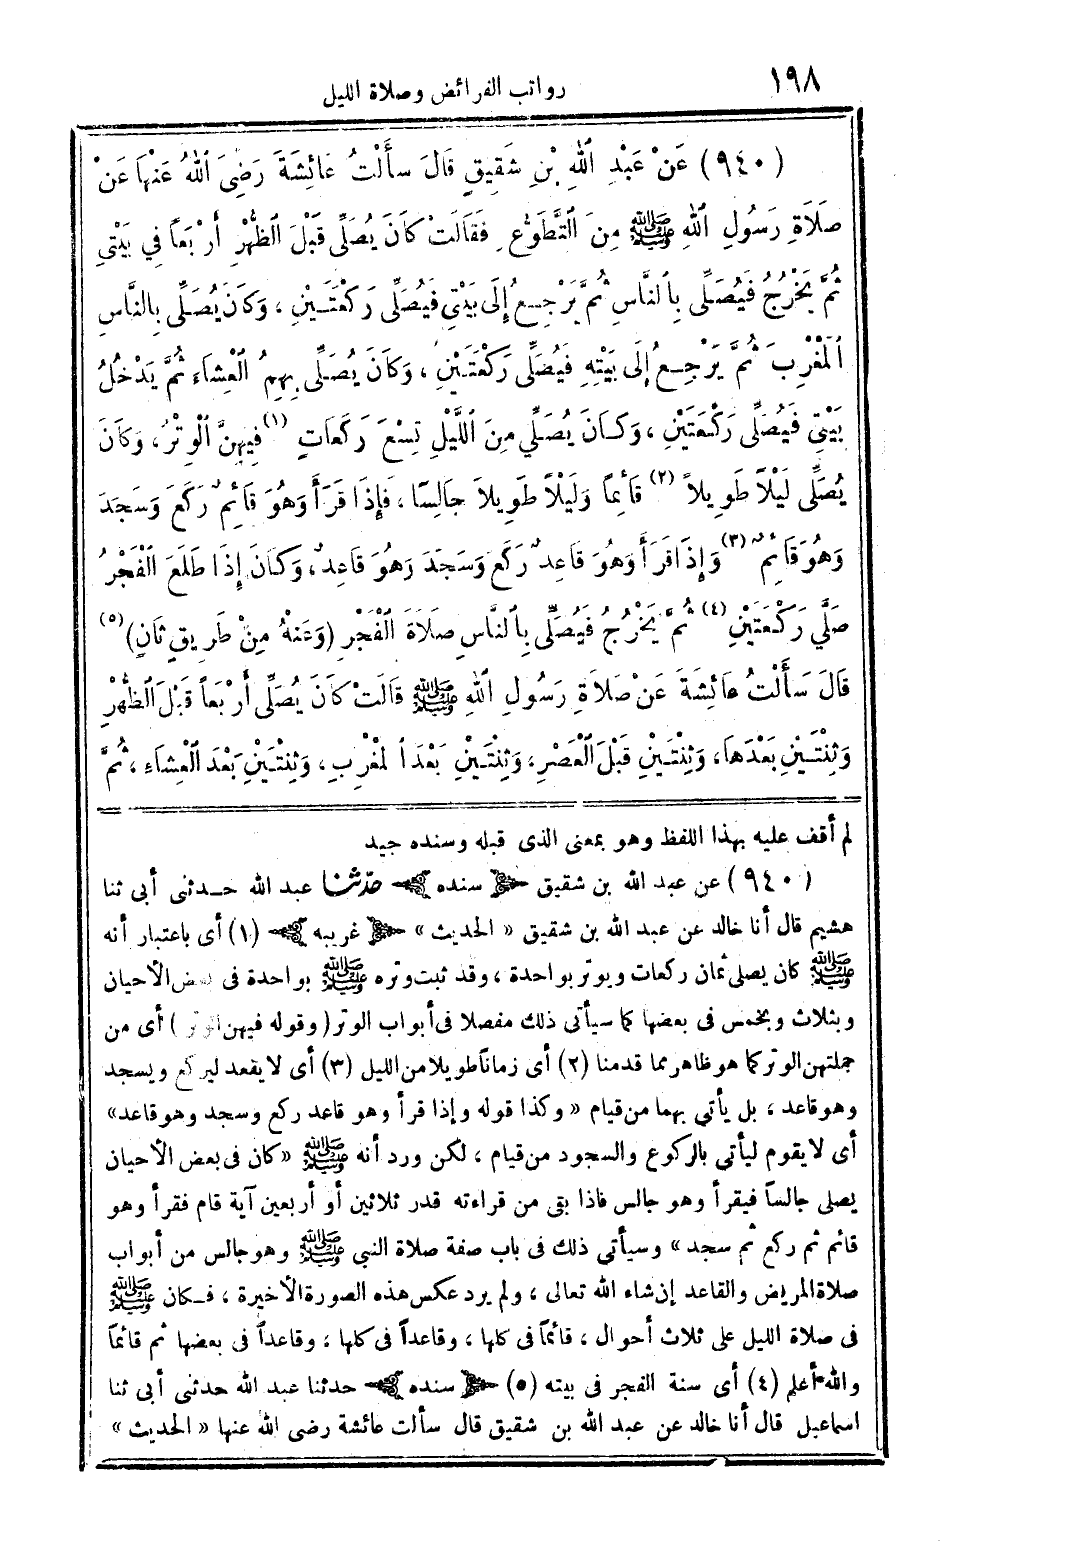 ١٩٨
رواتب الفرائض وصلاة الليل
(٩٤٠) عَنْ عَبْدِ اللهِ بْنِ شَقِيقٍ قَالَ سَأَلْتُ عَائِشَةَ رَضِيَ اللهُ عَنْهَا عَنْ
صَلَاةِ رَسُولِ اللهِ ﷺ مِنَ التَّطَوُّعِ فَقَالَتْ كَانَ يُصَلِّى قَبْلَ الظُّهْرِ أَرْبَعاً فِي بَيْتِى
ثُمَّ يَخْرُجُ فَيُصَلِّى بِالنَّاسِ ثُمَّ يَرْجِعُ إِلَى بَيْتِى فَيُصَلِّى رَكْعَتَيْنِ ، وَكَانَ يُصَلِّى بِالنَّاسِ
الْمَغْرِبَ ثُمَّ يَرْجِعُ إِلَى بَيْتِهِ فَيُصَلِّى رَكْعَتَيْنِ ، وَكَانَ يُصَلِّى بِهِمُ الْعِشَاءَ ثُمَّ يَدْخُلُ
بَيْتِى فَيُصَلِّى رَكْعَتَيْنِ ، وَكَانَ يُصَلِّي مِنَ اللَّيْلِ تِسْعَ رَكَعَاتٍ (١) فِيهِنَّ الْوِتْرُ ، وَكَانَ
يُصَلِّى لَيْلاً طَوِيلاً (٢) قَائِمًا وَلَيْلاً طَوِيلاً جَالِسًا ، فَإِذَا قَرَأَ وَهُوَ قَائِمٌ رَكَعَ وَسَجَدَ
وَهُوَ قَائِمٌ (٣) وَإِذَا قَرَأَ وَهُوَ قَاعِدٌ رَكَعَ وَسَجَدَ وَهُوَ قَاعِدٌ ، وَكَانَ إِذَا طَلَعَ الْفَجْرُ
صَلَّي رَكْعَتَيْنِ (٤) ثُمَّ يَخْرُجُ فَيُصَلِّى بِالنَّاسِ صَلَاةَ الْفَجْرِ (وَعَنْهُ مِنْ طَرِيقٍ ثَانٍ) (٥)
قَالَ سَأَلْتُ عَائِشَةَ عَنْ صَلَاةِ رَسُولِ اللهِ ﷺ قَالَتْ كَانَ يُصَلِّى أَرْبَعاً قَبْلَ الظُّهْرِ
وَثِنْتَيْنِ بَعْدَهَا ، وَثِنْتَيْنِ قَبْلَ الْعَصْرِ ، وَثِنْتَيْنِ بَعْدَ الْمَغْرِبِ ، وَثِنْتَيْنِ بَعْدَ الْعِشَاءِ ، ثُمَّ
لم أقف عليه بهذا اللفظ وهو بمعنى الذى قبله وسنده جيد
(٩٤٠) عن عبد الله بن شقيق سنده حدثنا عبد الله حدثنى أبى ثنا
هشيم قال أنا خالد عن عبد الله بن شقيق « الحديث » غريبه (١) أى باعتبار أنه
ﷺ كان يصلى ثمان ركعات ويوتر بواحدة ، وقد ثبت وتره ﷺ بواحدة فى بعض الأحيان
وبثلاث وبخمس فى بعضها كما سيأتى ذلك مفصلا فى أبواب الوتر (وقوله فيهن الوتر) أى من
جملتهن الوتر كما هو ظاهر مما قدمنا (٢) أى زماناً طويلا من الليل (٣) أى لا يقعد ليركع ويسجد
وهو قاعد ، بل يأتي بهما من قيام « وكذا قوله وإذا قرأ وهو قاعد ركع وسجد وهو قاعد»
أى لا يقوم ليأتي بالركوع والسجود من قيام ، لكن ورد أنه ﷺ «كان فى بعض الأحيان
يصلى جالساً فيقرأ وهو جالس فاذا بقى من قراءته قدر ثلاثين أو أربعين آية قام فقرأ وهو
قائم ثم ركع ثم سجد» وسيأتى ذلك فى باب صفة صلاة النبى ﷺ وهو جالس من أبواب
صلاة المريض والقاعد إن شاء الله تعالى ، ولم يرد عكس هذه الصورة الأخيرة ، فكان ﷺ
فى صلاة الليل على ثلاث أحوال ، قائماً فى كلها ، وقاعداً فى كلها ، وقاعداً فى بعضها ثم قائماً
والله أعلم (٤) أى سنة الفجر فى بيته (٥) سنده حدثنا عبد الله حدثنى أبى ثنا
اسماعيل قال أنا خالد عن عبد الله بن شقيق قال سألت عائشة رضى الله عنها « الحديث »